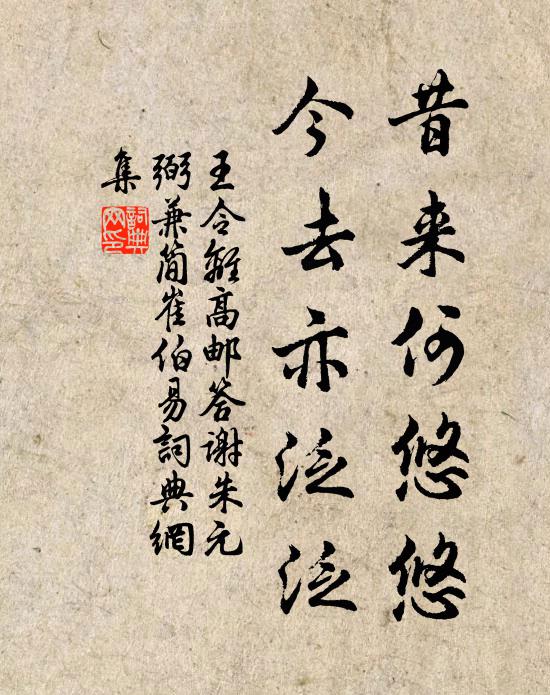 昔来何悠悠
今去亦泛泛
王令離高邮答谢朱元
弼兼简崔伯易詞典網
集
詞典网印